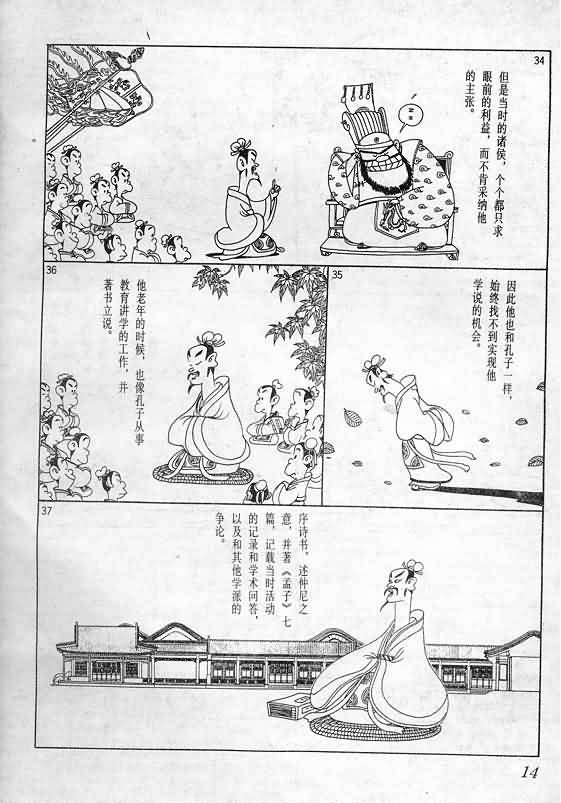 34
但是当时的诸侯，个个都只求
眼前的利益，而不肯采纳他
的主张。
35
因此他也和孔子一样，
始终找不到实现他
学说的机会。
36
他老年的时候，也像孔子从事
教育讲学的工作，并
著书立说。
37
序诗书，述仲尼之
意，并著《孟子》七
篇，记载当时活动
的记录和学术问答，
以及和其他学派的
争论。
14